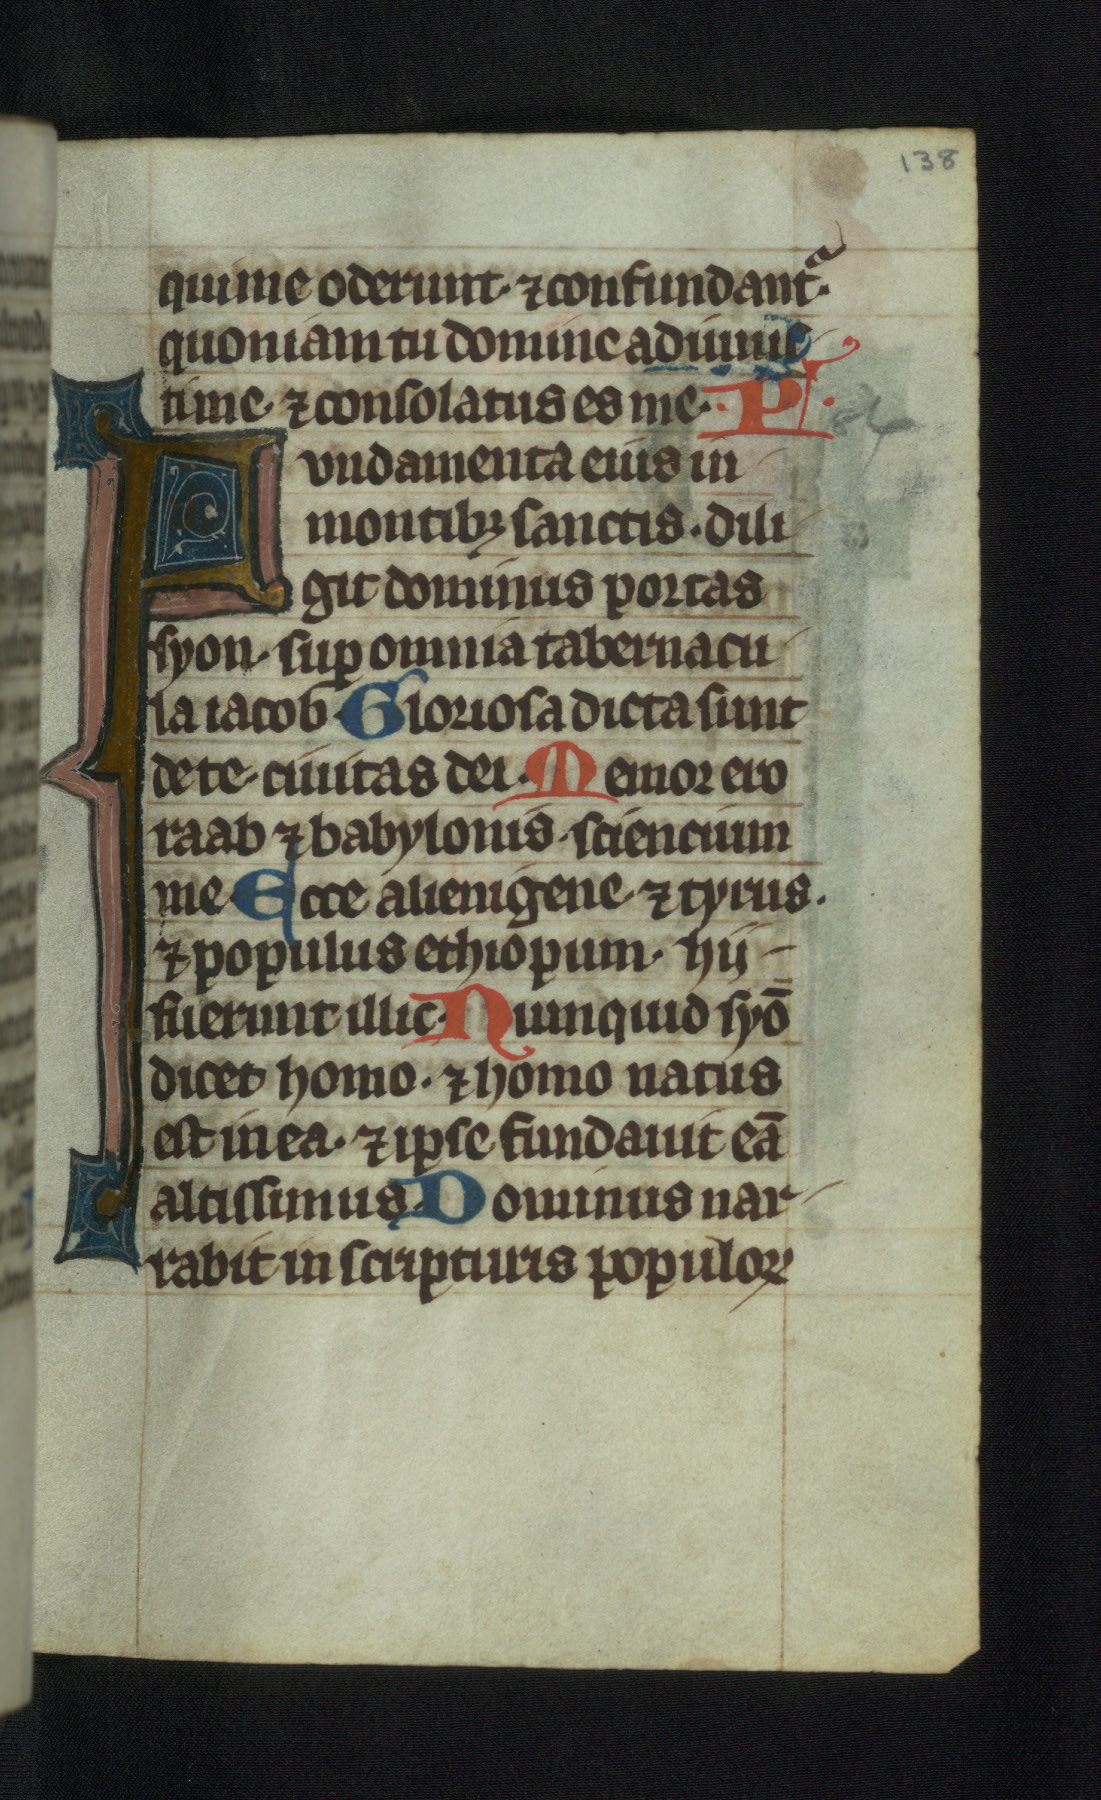 138
qui me oderunt. ⁊ confundant᷑.
quoniam tu domine adiuuis
ti me. ⁊ consolatus es me. P̃.
Fundamenta eius in
montibꝫ sanctis. dili
git dominus portas
syon. suꝑ omnia tabernacu
la iacob Gloriosa dicta sunt
de te. ciuitas dei. Memor ero
raab ⁊ babylonis. sciencium
me Ecce alienigene. ⁊ tyrus.
⁊ populus ethiopum. hij
fuerunt illic. Numquid syō
dicet homo. ⁊ homo natus
est in ea. ⁊ ipse fundauit eā
altissimus Dominus nar
rabit in scripturis populoꝝ